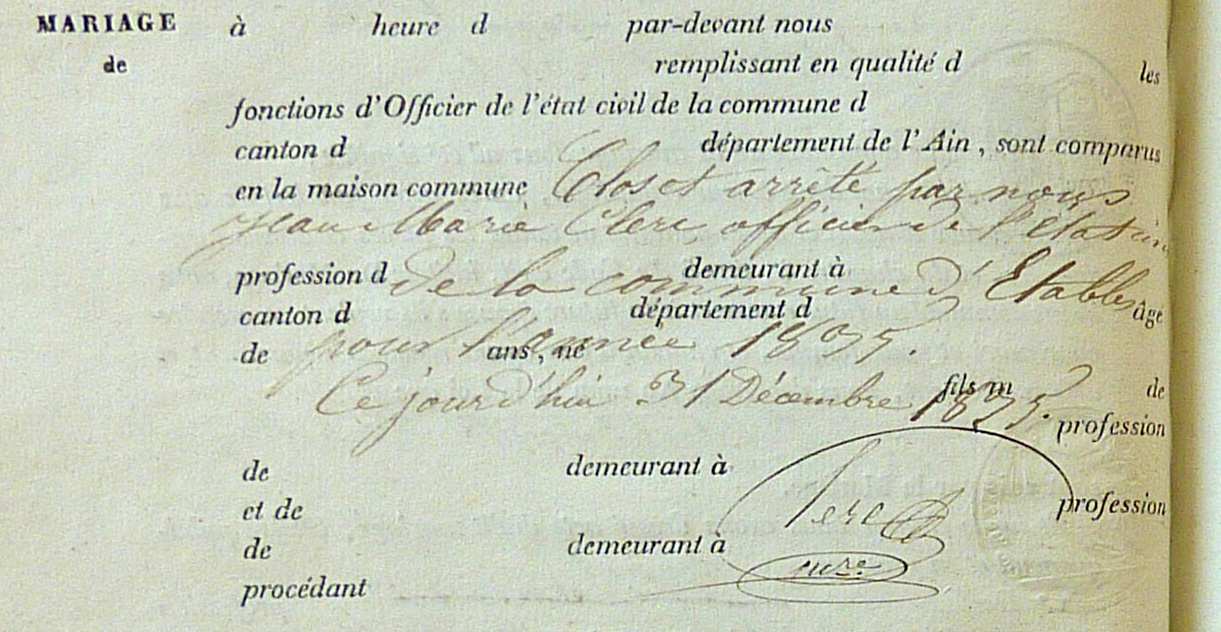 MARIAGE à heure d par-devant nous
de remplissant en qualité d les
fonctions d'Officier de l'état civil de la commune d
canton d département de l'Ain, sont comparus
en la maison commune Clos et arrêté par nous
Jean Marie Clerc officier de l'Etat civil
profession d demeurant à
de la commune d'Etables
canton d département d âgé
de pour l'année 1875. ans, né
Ce jourd'hui 31 Décembre 1875. fils m de
profession
de demeurant à
Clerc
et de profession
de demeurant à
procédant